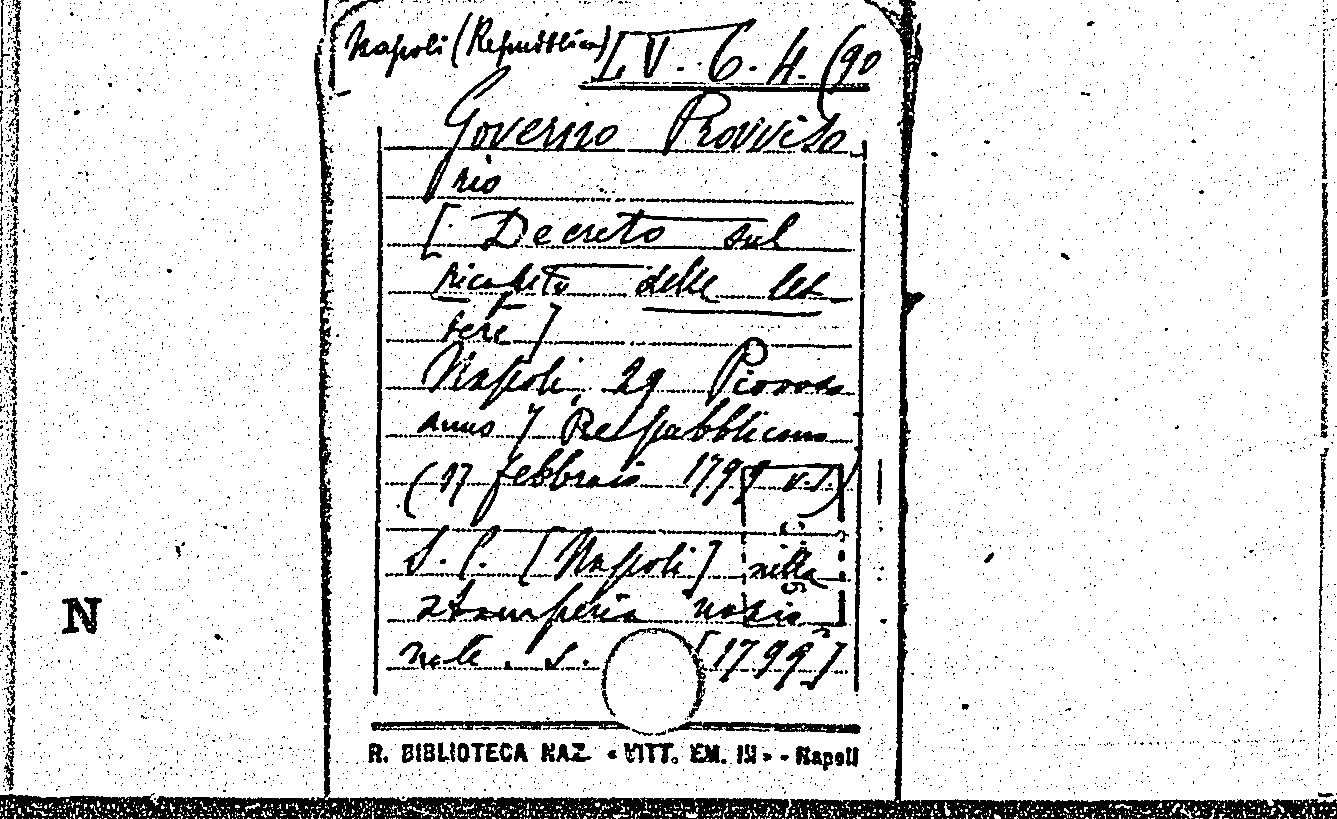 Napoli (Repubblica) LV. 6. 4. (90
Governo Provviso
rio
[Decreto sul
ricapito delle let
tere]
Napoli, 29 Piovoso
anno 7 Repubblicano
(17 febbraio 1799 v.s.)
S. l. [Napoli] nella
stamperia nazio
nale. s. [1799]
R. BIBLIOTECA NAZ. «VITT. EM. III» - Napoli
N